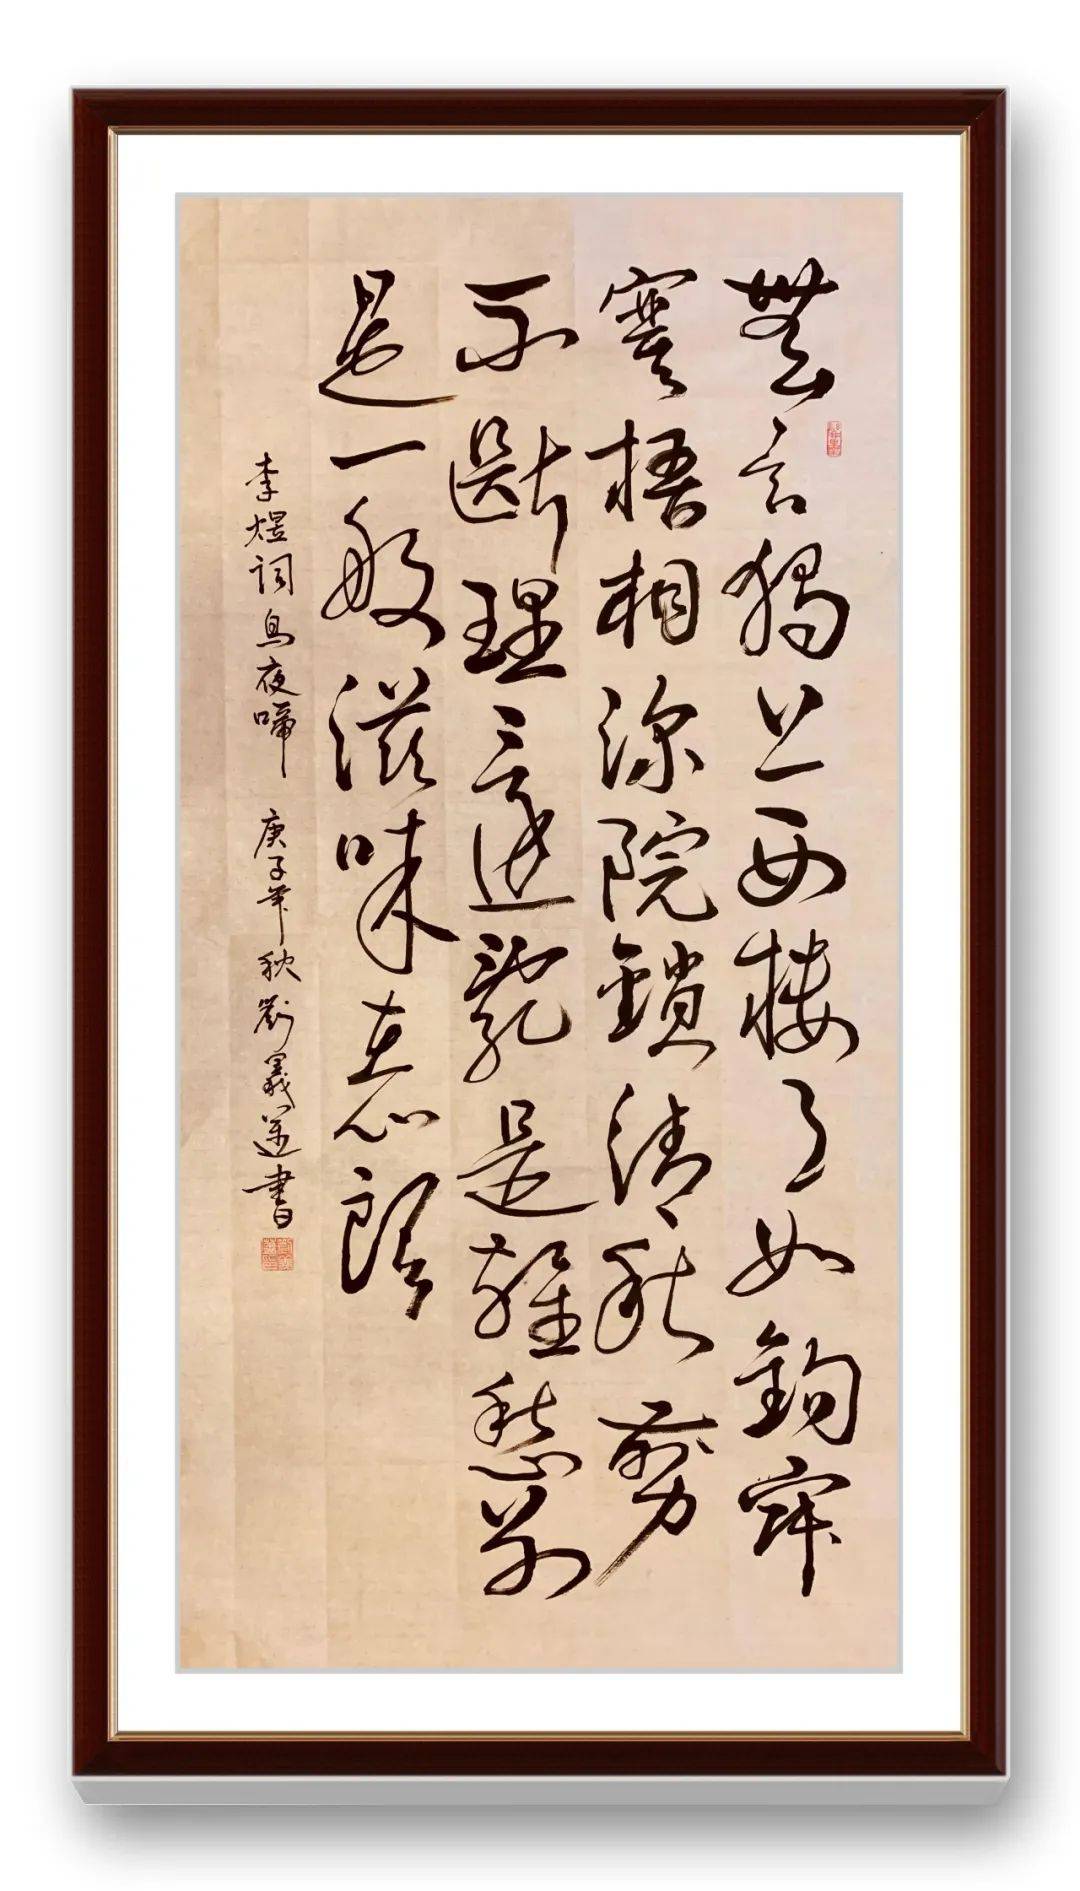 無言獨上西樓月如鉤寂
寞梧桐深院鎖清秋剪
不斷理還亂是離愁別
是一般滋味在心頭
李煜詞烏夜啼 庚子年秋劉義書